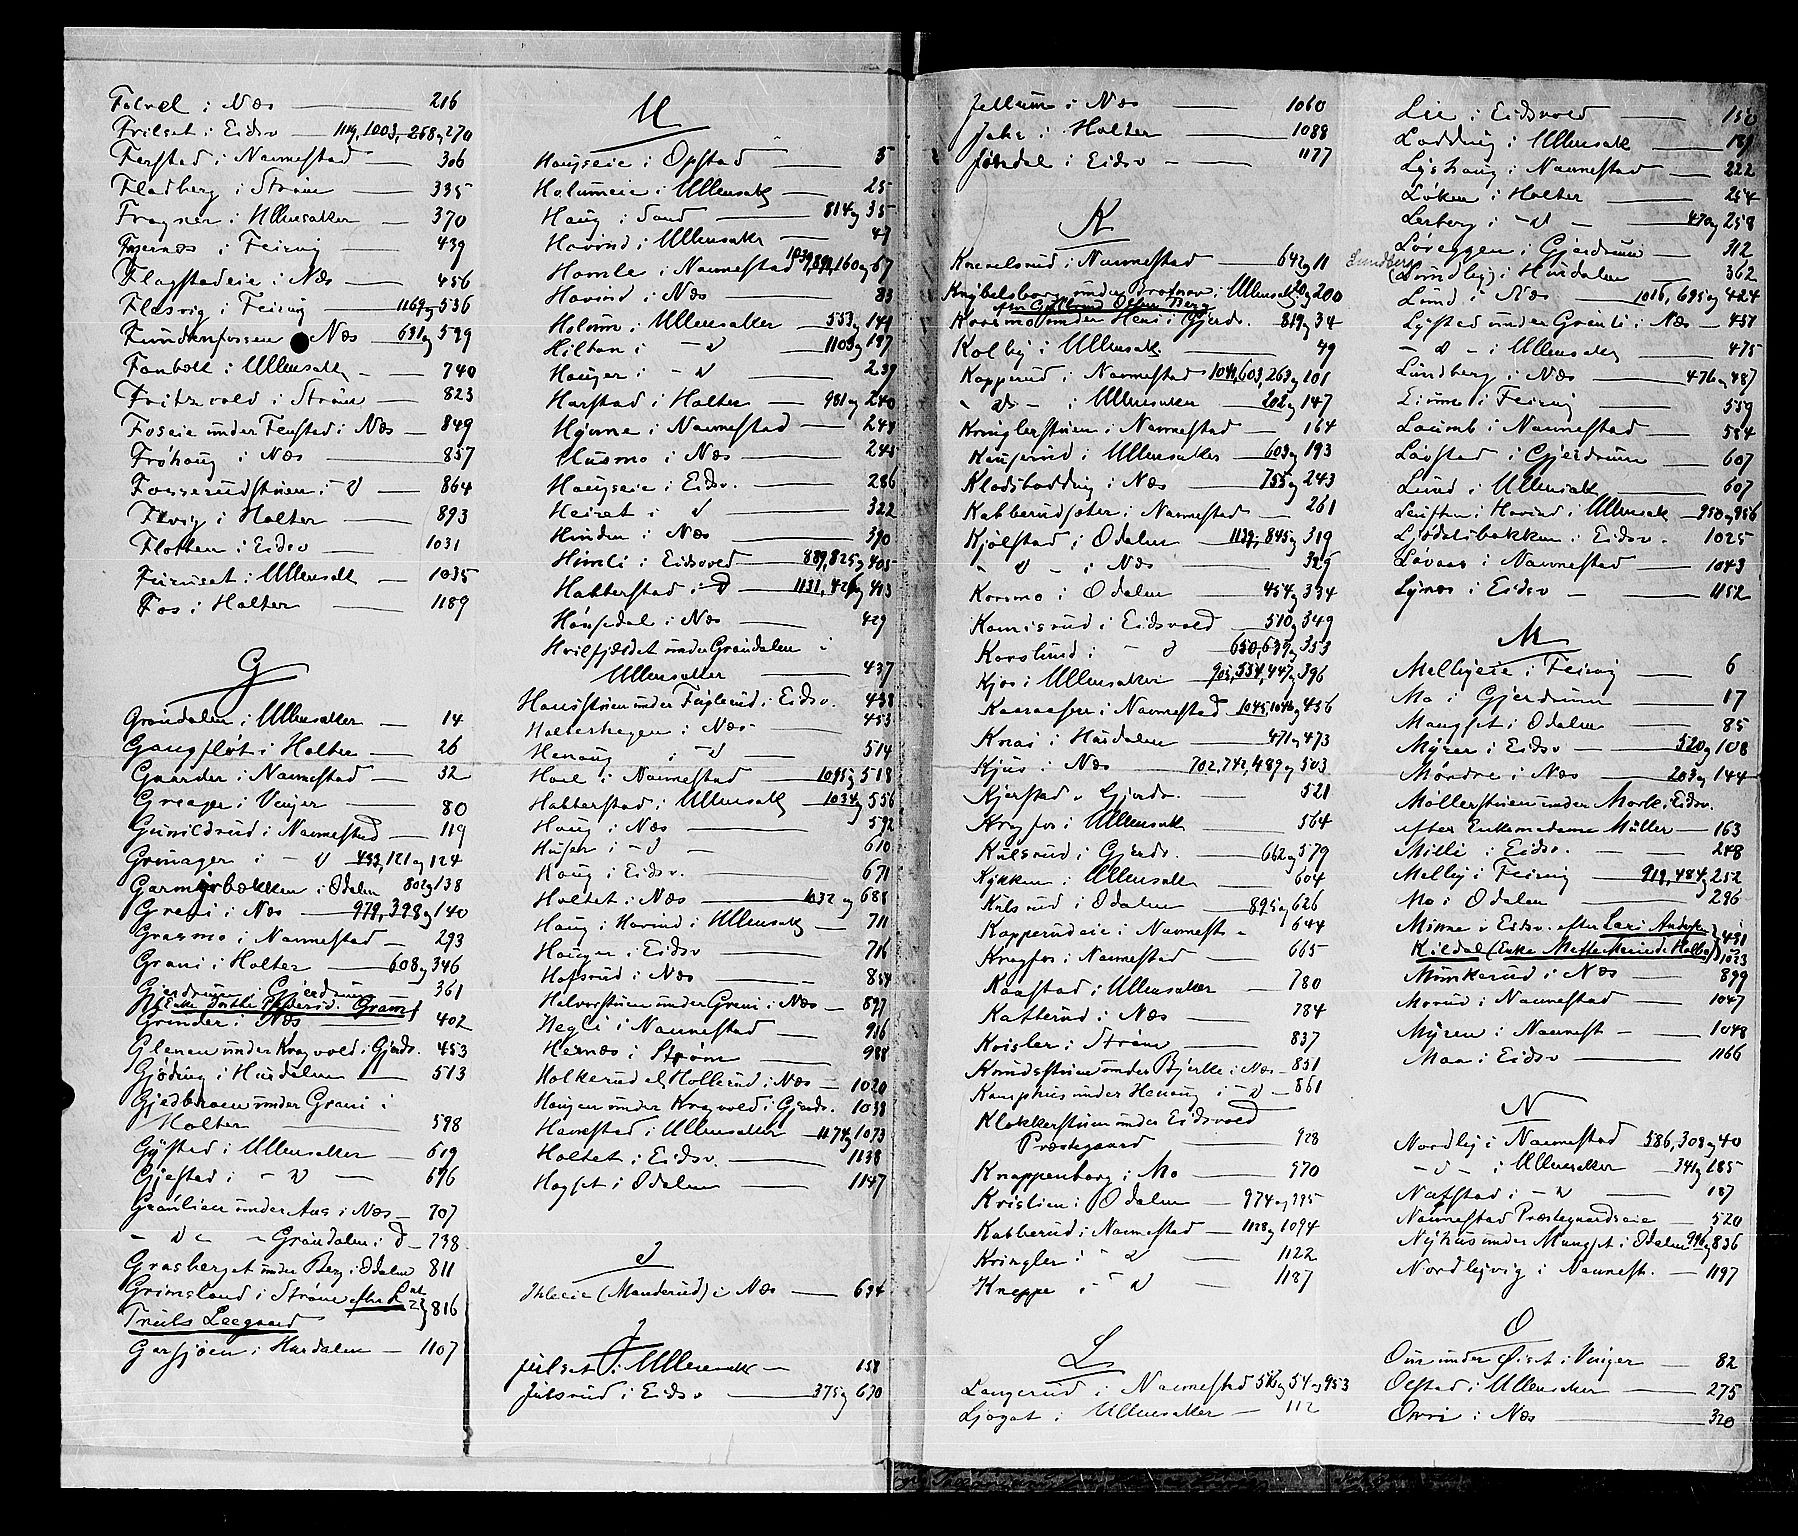 Folvel i Næs — 216
Frilset i Eidsv — 1119, 1003, 268 og 270
Ferstad i Nannestad — 306
Fladberg i Strøm — 335
Frogner i Ullensaker — 370
Fjernæs i Feiring — 439
Flagstadeie i Næs — 456
Flesvig i Feiring — 1169 og 536
Fundenfossen Næs — 631 og 599
Fonbæk i Ullensak — 740
Fritzvold i Strøm — 823
Foseie under Fenstad i Næs — 849
Frøhaug i Næs — 857
Fosserudstuen i d — 864
Flvig i Holter — 893
Flotten i Eidsv — 1031
Furuset i Ullensak — 1035
Fos i Holter — 1189
G
Grøndalen i Ullensaker — 14
Gangfløt i Holter — 26
Gaarder i Nannestad — 32
Greaper i Vinger — 80
Gunildrud i Nannestad — 119
Grinager i — d 433, 121 og 124
Garmyrbækken i Odalen 802 og 138
Greni i Næs — 979, 398 og 140
Grasmo i Nannestad — 293
Grani i Holter — 608 og 346
Gjerdrum i Gjerdrum — 361
(Enke Dorthe Pedersd. Gram)
Grinder i Næs — 402
Glenen under Kragvold i Gjerdr. 453
Gjøding i Hurdalen — 513
Gjedbraaen under Grani i
Holter — 598
Gystad i Ullensaker — 619
Gjestad i — d — 696
Graulien under Aas i Næs — 707
— d — Grøndalen i d — 738
Grasberget under Berg i Odalen 811
Grimsland i Strøm efter
Truls Leegaard 816
Gersjøen i Hurdalen — 1107
H
Haugseie i Opstad — 5
Holumeie i Ullensak — 25
Haug i Sand — 814 og 35
Hovind i Ullensaker — 47
Homle i Nannestad 1039, 899, 160 og 67
Hovind i Næs — 83
Holum i Ullensaker — 553 og 141
Hilton i — d — 1103 og 197
Hauger i — d — 239
Harstad i Holter — 981 og 240
Hynne i Nannestad — 241
Husmo i Næs — 245
Haugseie i Eidsv. — 286
Heiret i d — 322
Hinden i Næs — 390
Himli i Eidsvold — 889, 825 og 405
Habberstad i d — 1131, 426 og 413
Hønsedal i Næs — 429
Hvilfjeldet under Grøndalen i
Ullensaker — 437
Hausstuen under Fuglerud i Eidsv. 438
Holterhagen i Næs — 453
Henaug i d — 514
Hoel i Nannestad — 1095 og 518
Habberstad i Ullensak — 1034 og 556
Haug i Næs — 592
Huser i — d — 610
Haug i Eidsv. — 671
Holtet i Næs — 1032 og 688
Haug i Hovind i Ullensak — 711
Hauger i Eidsv — 716
Hofsrud i Næs — 854
Halvorstuen under Greni i Næs — 897
Hegli i Nannestad — 916
Hernæs i Strøm — 988
Holkerud el. Hollerud i Næs — 1020
Haugen under Kragvold i Gjerdr. 1038
Hanestad i Ullensaker — 1174 og 1073
Holtet i Eidsv. — 1138
Hogset i Odalen — 1147
I
Ihleeie (Manderud) i Næs — 634
J
Julset i Ullensak — 158
Julsrud i Eidsv — 375 og 630
Jellum i Næs — 1060
Jahr i Holter — 1088
Jøndal i Eidsv — 1177
K
Knaelsrud i Nannestad — 642 og 11
Knybelsborg under Brotnov i Ullensak 20 og 200
Korsmo under Heni i Gjerdr. 819 og 34
Kolby i Ullensak. — 49
Kopperud i Nannestad 1041, 603, 263 og 101
— do — i Ullensaker — 202 og 147
Kringlerstuen i Nannestad — 164
Kauserud i Ullensaker — 603 og 193
Klodsbodding i Næs — 755 og 243
Kabberudsæter i Nannestad — 261
Kjølstad i Odalen 1139, 845 og 319
— d — i Næs — 325
Korsmo i Odalen — 454 og 334
Komisrud i Eidsvold — 510 og 349
Korslund i — d — 650, 639 og 353
Kjos i Ullensaker 705, 554, 447 og 396
Kaaraasen i Nannestad 1045, 1046 og 456
Knai i Hurdalen — 471 og 473
Kjus i Næs — 702, 742, 489 og 503
Kjerstad i Gjerdr. — 521
Krogfos i Ullensak — 564
Kulsrud i Gjerdr. — 662 og 579
Kykken i Ullensak — 604
Kulsrud i Odalen — 895 og 626
Kopperudeie i Nannest — 644
Krogfos i Nannestad — 665
Kaastad i Ullensaker — 780
Katterud i Næs — 784
Kvisler i Strøm — 837
Knudsstuen under Bjerke i Næs — 851
Kamphus under Henaug i — d — 861
Klokkerstuen under Eidsvold
Præstegaard — 928
Knappenborg i Mo — 970
Kvislien i Odalen — 974 og 995
Kabberud i Nannestad — 1128 og 1094
Kringler i " d — 1122
Kneppe i " d — 1187
L
Langerud i Nannestad 516 og 54 og 953
Ljøgot i Ullensaker — 112
Lie i Eidsvold — 150
Lodding i Ullensak — 189
Lyshaug i Nannestad — 222
Løken i Holter — 254
Lerberg i — d — 470 og 258
Løreggen i Gjerdrum — 312
Lundberg
(Lundby) i Hurdalen — 362
Lund i Næs — 1016, 695 og 424
Lysted under Grønli i Næs — 451
— d — i Ullensaker — 475
Lundberg i Næs — 476 og 487
Liume i Feiring — 559
Loumb i Nannestad — 584
Løvstad i Gjerdrum — 607
Lund i Ullensak — 607
Luften i Hovind i Ullensak — 950 og 956
Ljødalsbakken i Eidsv. 1025
Løvaas i Nannestad — 1043
Lynæs i Eidsv — 1152
M
Melbyeie i Feiring — 6
Mo i Gjerdrum — 17
Maugset i Odalen — 85
Myrer i Eidsv — 520 og 108
Mørdre i Næs — 203 og 144
Møllerstuen under Mork i Eidsv.
efter Enkemadame Müller — 163
Milli i Eidsv. — 248
Melby i Feiring — 919, 484 og 252
Mo i Odalen — 296
Minne i Eidsv. efter Lars Andersen 491
Kildal (Enke Mette Marie d. Helberg) 1023
Munkerud i Næs — 899
Morud i Nannestad — 1047
Myren i Nannest — 1048
Maa i Eidsv — 1166
N
Nordby i Nannestad 586, 308 og 40
— d — i Ullensaker — 341 og 185
Nafstad i — d — 187
Nannestad Præstegaardseie — 520
Nyhus under Maugset i Odalen 996 og 836
Nordbyvig i Nannest. — 1197
O
Ous under Øist i Vinger — 82
Olstad i Ullensaker — 275
Ovri i Næs — 320